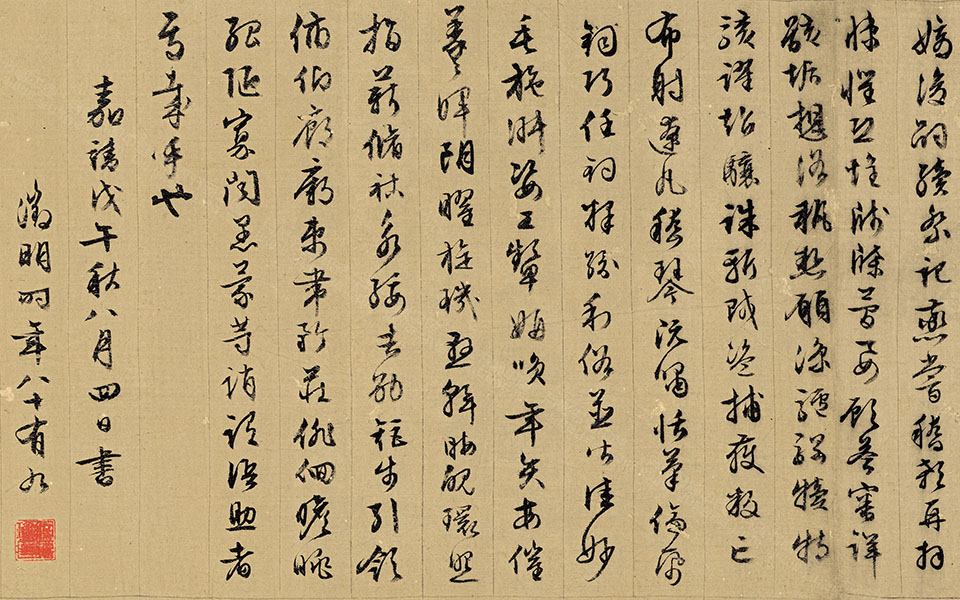 嫡後嗣續祭祀蒸嘗稽顙再拜
悚懼恐惶牋牒簡要顧答審詳
骸垢想浴執熱願涼驢騾犢特
駭躍超驤誅斬賊盜捕獲叛亡
布射遼丸嵇琴阮嘯恬筆倫紙
鈞巧任釣釋紛利俗並皆佳妙
毛施淑姿工顰妍笑年矢每催
羲暉朗曜旋璣懸斡晦魄環照
指薪脩祜永綏吉劭矩步引領
俯仰廊廟束帶矜莊徘徊瞻眺
孤陋寡聞愚蒙等誚謂語助者
焉哉乎也
嘉靖戊午秋八月四日書
徵明時年八十有九